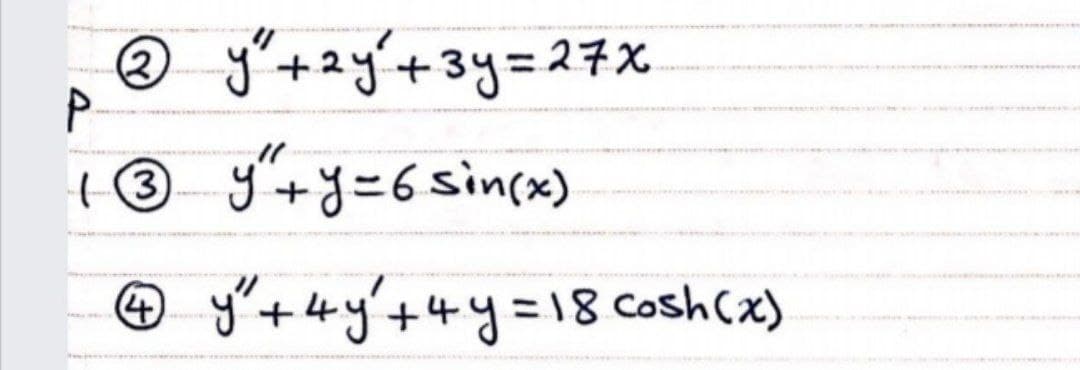 ② y″+2y′+3y=27x
p
1 ③ y″+y=6 sin(x)
④ y″+4y′+4y=18 cosh(x)